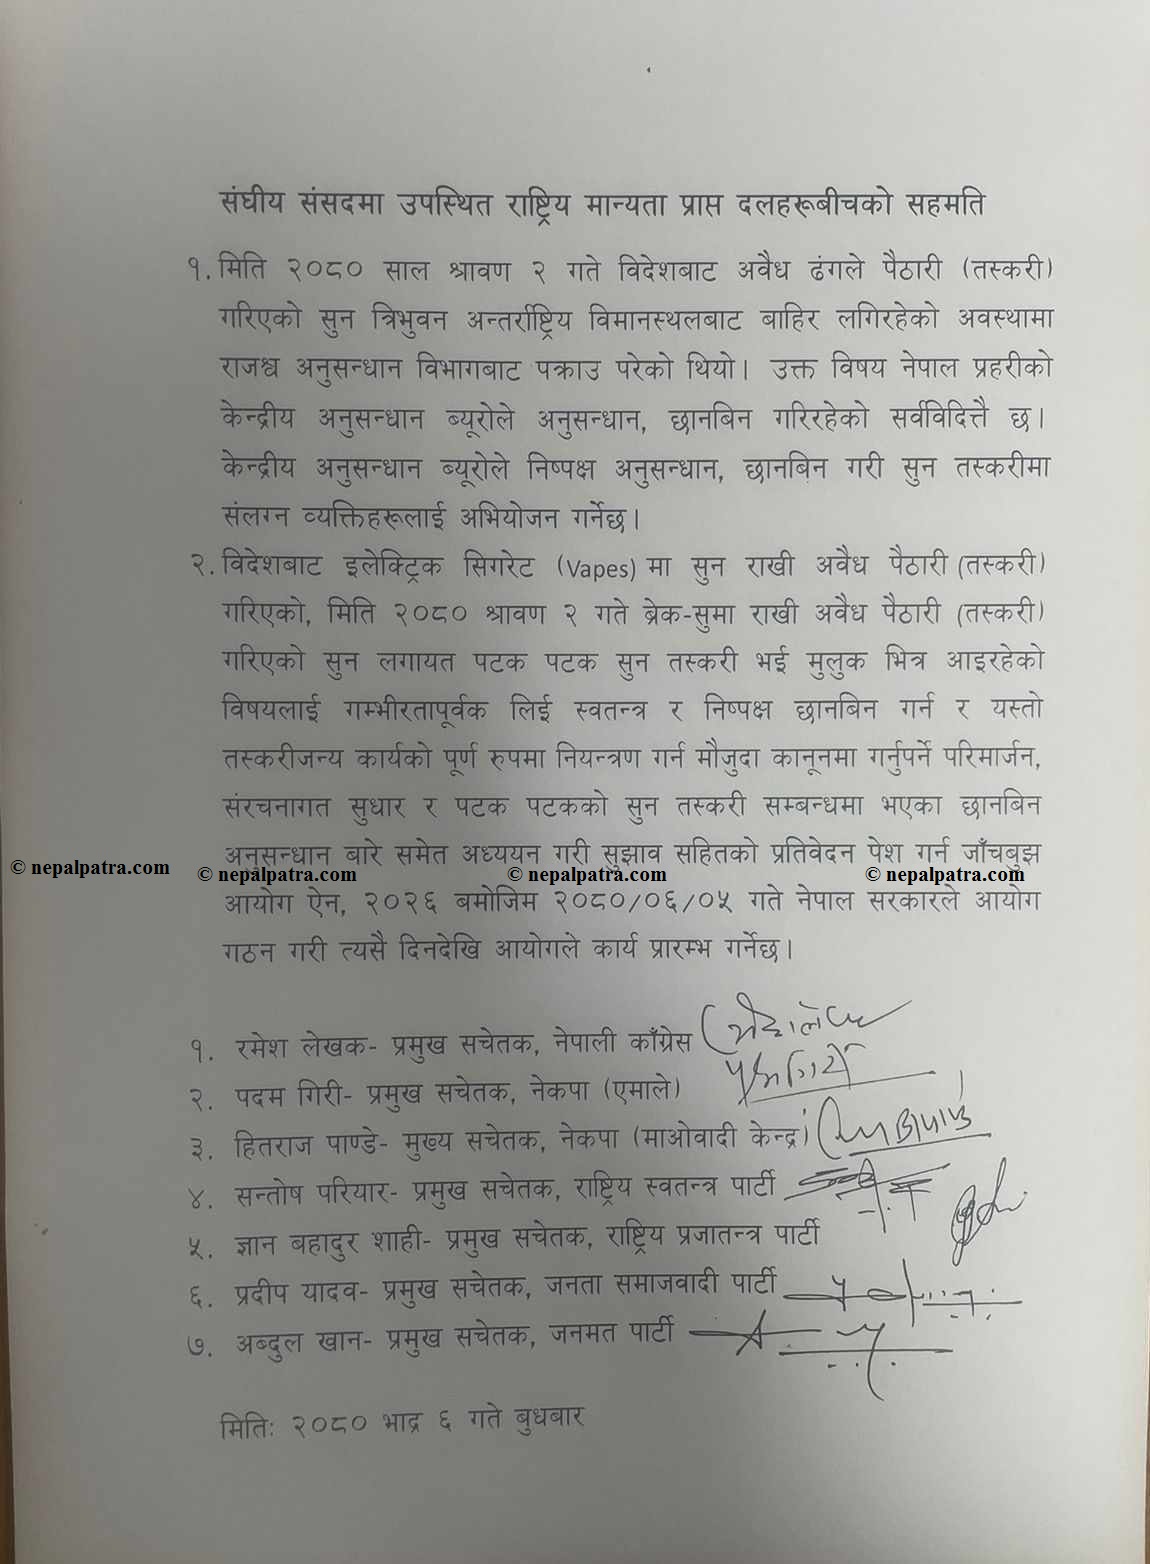 संघीय संसदमा उपस्थित राष्ट्रिय मान्यता प्राप्त दलहरूबीचको सहमति
१. मिति २०८० साल श्रावण २ गते विदेशबाट अवैध ढंगले पैठारी (तस्करी)
गरिएको सुन त्रिभुवन अन्तर्राष्ट्रिय विमानस्थलबाट बाहिर लगिरहेको अवस्थामा
राजश्व अनुसन्धान विभागबाट पक्राउ परेको थियो। उक्त विषय नेपाल प्रहरीको
केन्द्रीय अनुसन्धान ब्यूरोले अनुसन्धान, छानबिन गरिरहेको सर्वविदित्तै छ।
केन्द्रीय अनुसन्धान ब्यूरोले निष्पक्ष अनुसन्धान, छानबिन गरी सुन तस्करीमा
संलग्न व्यक्तिहरूलाई अभियोजन गर्नेछ।
२. विदेशबाट इलेक्ट्रिक सिगरेट (Vapes) मा सुन राखी अवैध पैठारी (तस्करी)
गरिएको, मिति २०८० श्रावण २ गते ब्रेक-सुमा राखी अवैध पैठारी (तस्करी)
गरिएको सुन लगायत पटक पटक सुन तस्करी भई मुलुक भित्र आइरहेको
विषयलाई गम्भीरतापूर्वक लिई स्वतन्त्र र निष्पक्ष छानबिन गर्न र यस्तो
तस्करीजन्य कार्यको पूर्ण रुपमा नियन्त्रण गर्न मौजुदा कानूनमा गर्नुपर्ने परिमार्जन,
संरचनागत सुधार र पटक पटकको सुन तस्करी सम्बन्धमा भएका छानबिन
अनुसन्धान बारे समेत अध्ययन गरी सुझाव सहितको प्रतिवेदन पेश गर्न जाँचबुझ
© nepalpatra.com © nepalpatra.com © nepalpatra.com © nepalpatra.com
आयोग ऐन, २०२६ बमोजिम २०८०/०६/०५ गते नेपाल सरकारले आयोग
गठन गरी त्यसै दिनदेखि आयोगले कार्य प्रारम्भ गर्नेछ।
१. रमेश लेखक- प्रमुख सचेतक, नेपाली काँग्रेस
२. पदम गिरी- प्रमुख सचेतक, नेकपा (एमाले)
३. हितराज पाण्डे- मुख्य सचेतक, नेकपा (माओवादी केन्द्र)
४. सन्तोष परियार- प्रमुख सचेतक, राष्ट्रिय स्वतन्त्र पार्टी
५. ज्ञान बहादुर शाही- प्रमुख सचेतक, राष्ट्रिय प्रजातन्त्र पार्टी
६. प्रदीप यादव- प्रमुख सचेतक, जनता समाजवादी पार्टी
७. अब्दुल खान- प्रमुख सचेतक, जनमत पार्टी
मितिः २०८० भाद्र ६ गते बुधबार